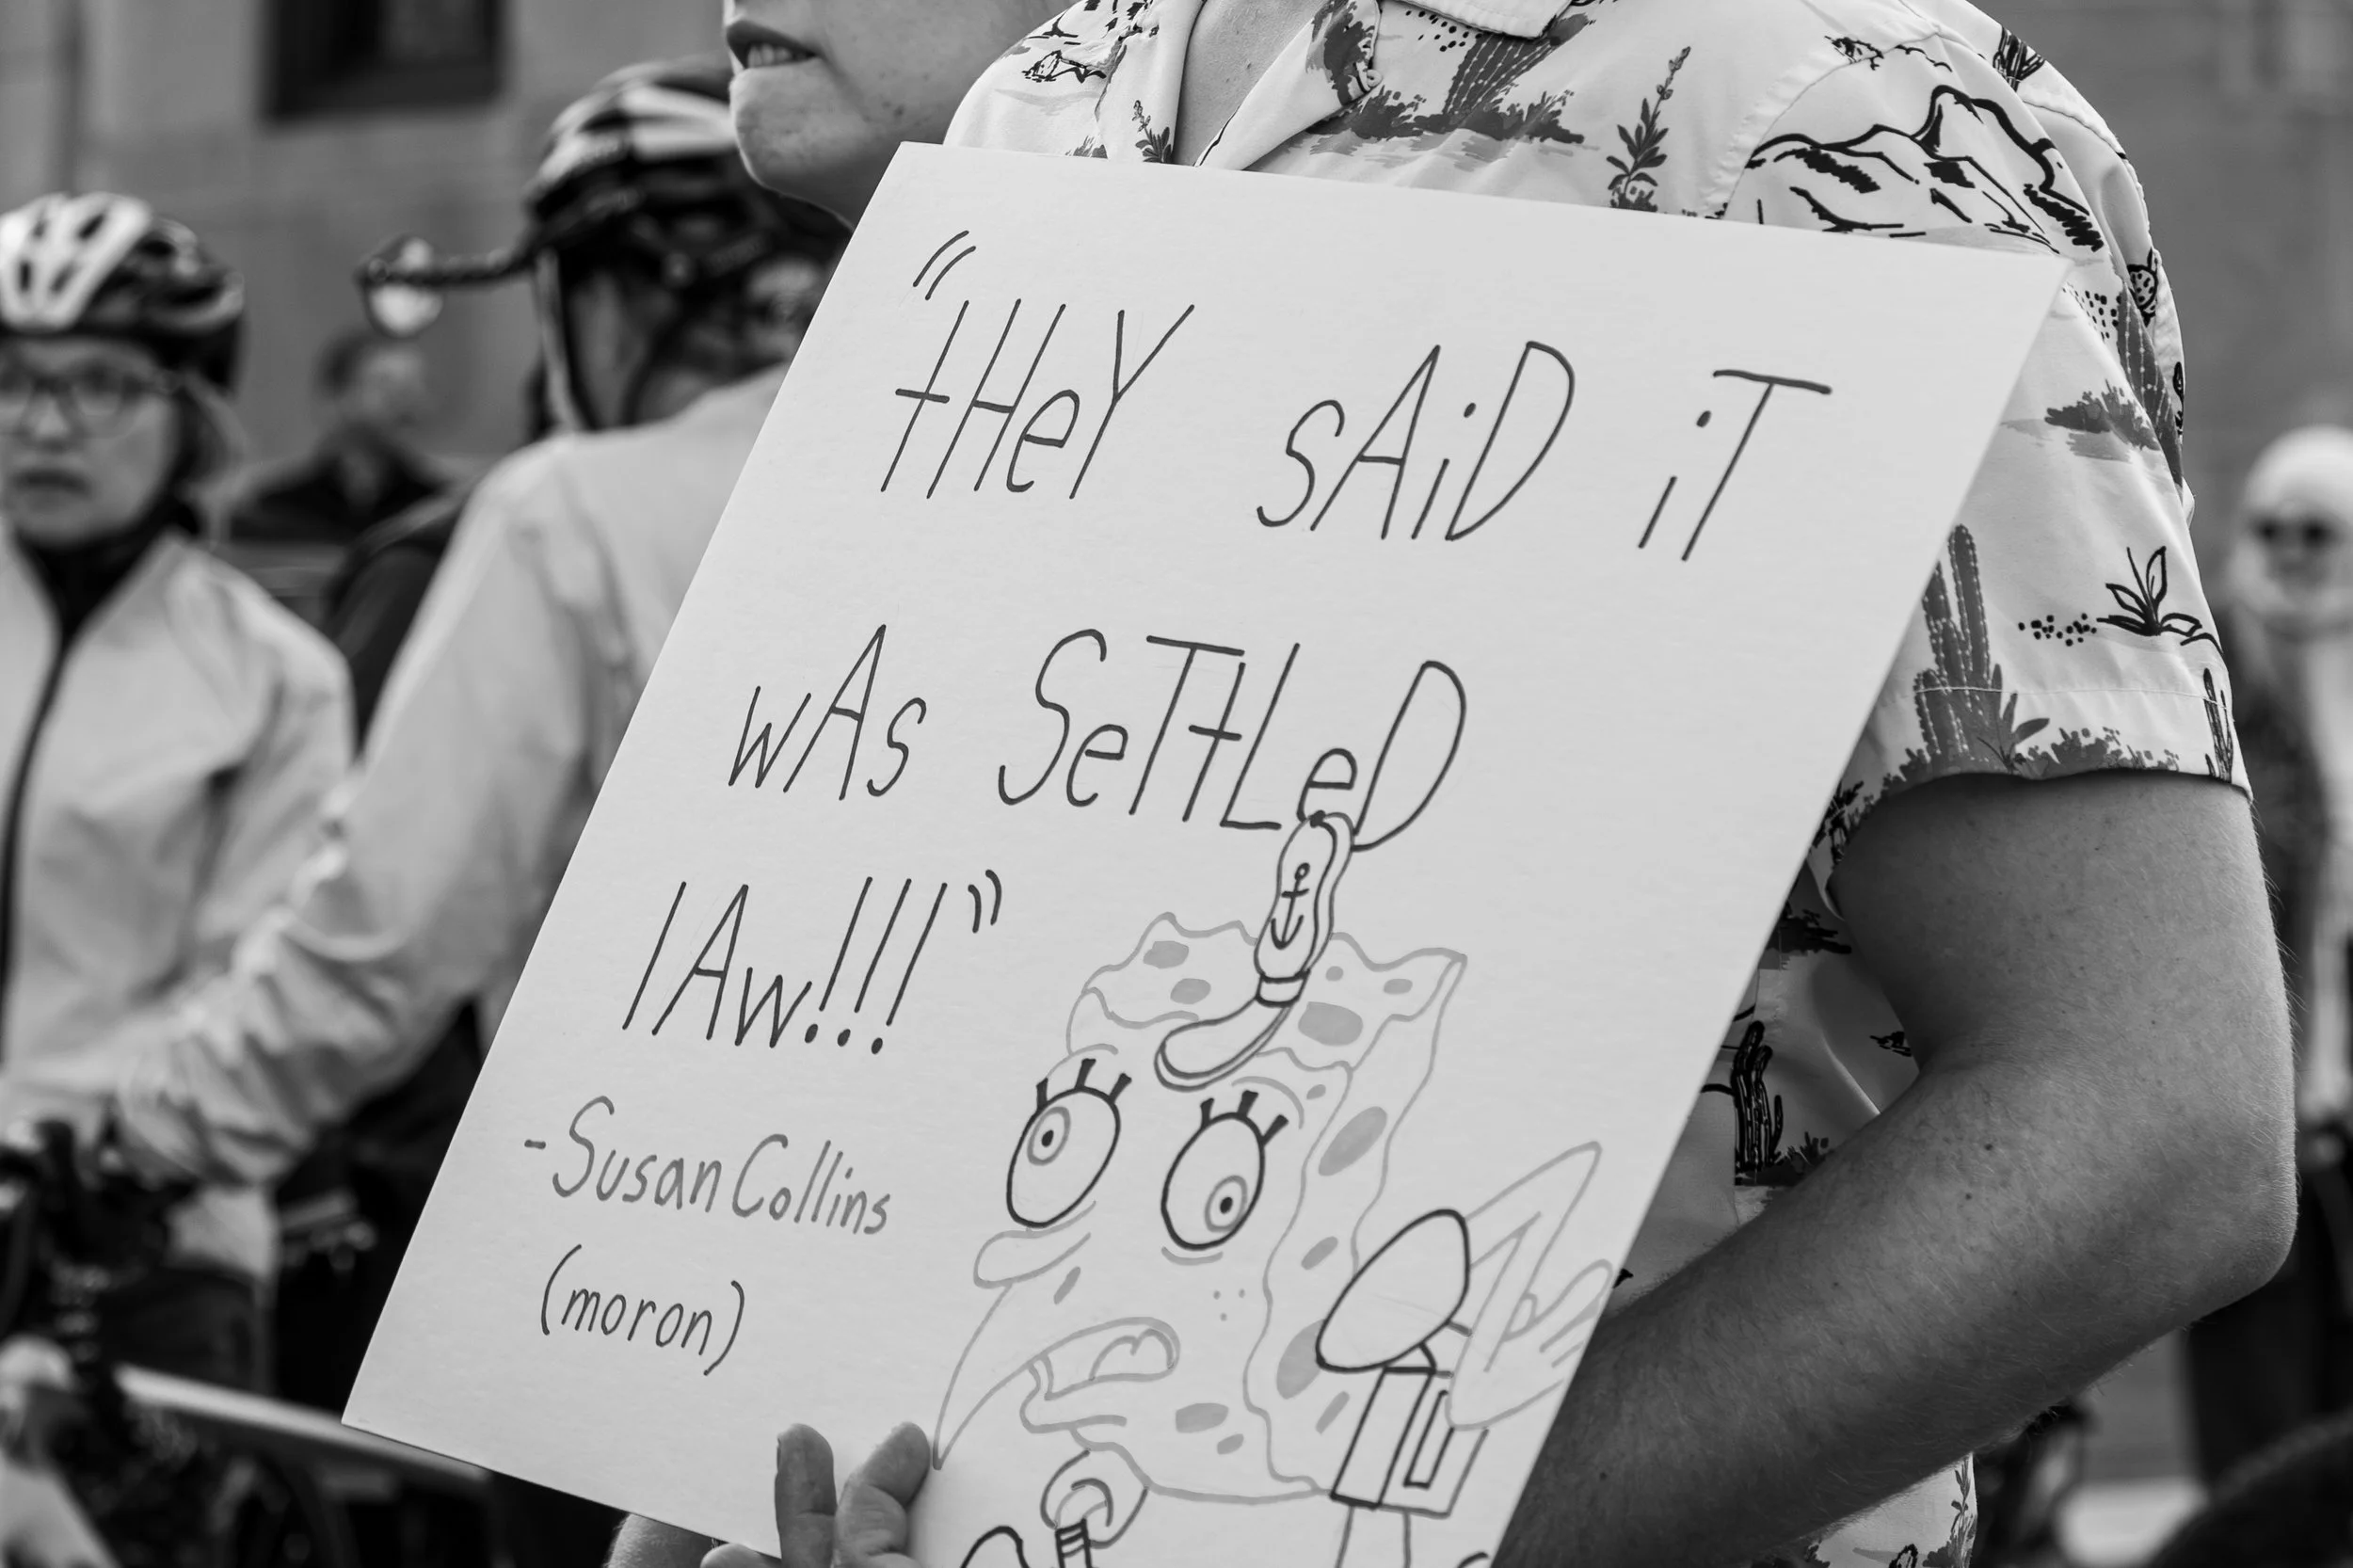 "tHeY sAiD iT
wAs SeTtLeD
lAw!!!"
-Susan Collins
(moron)